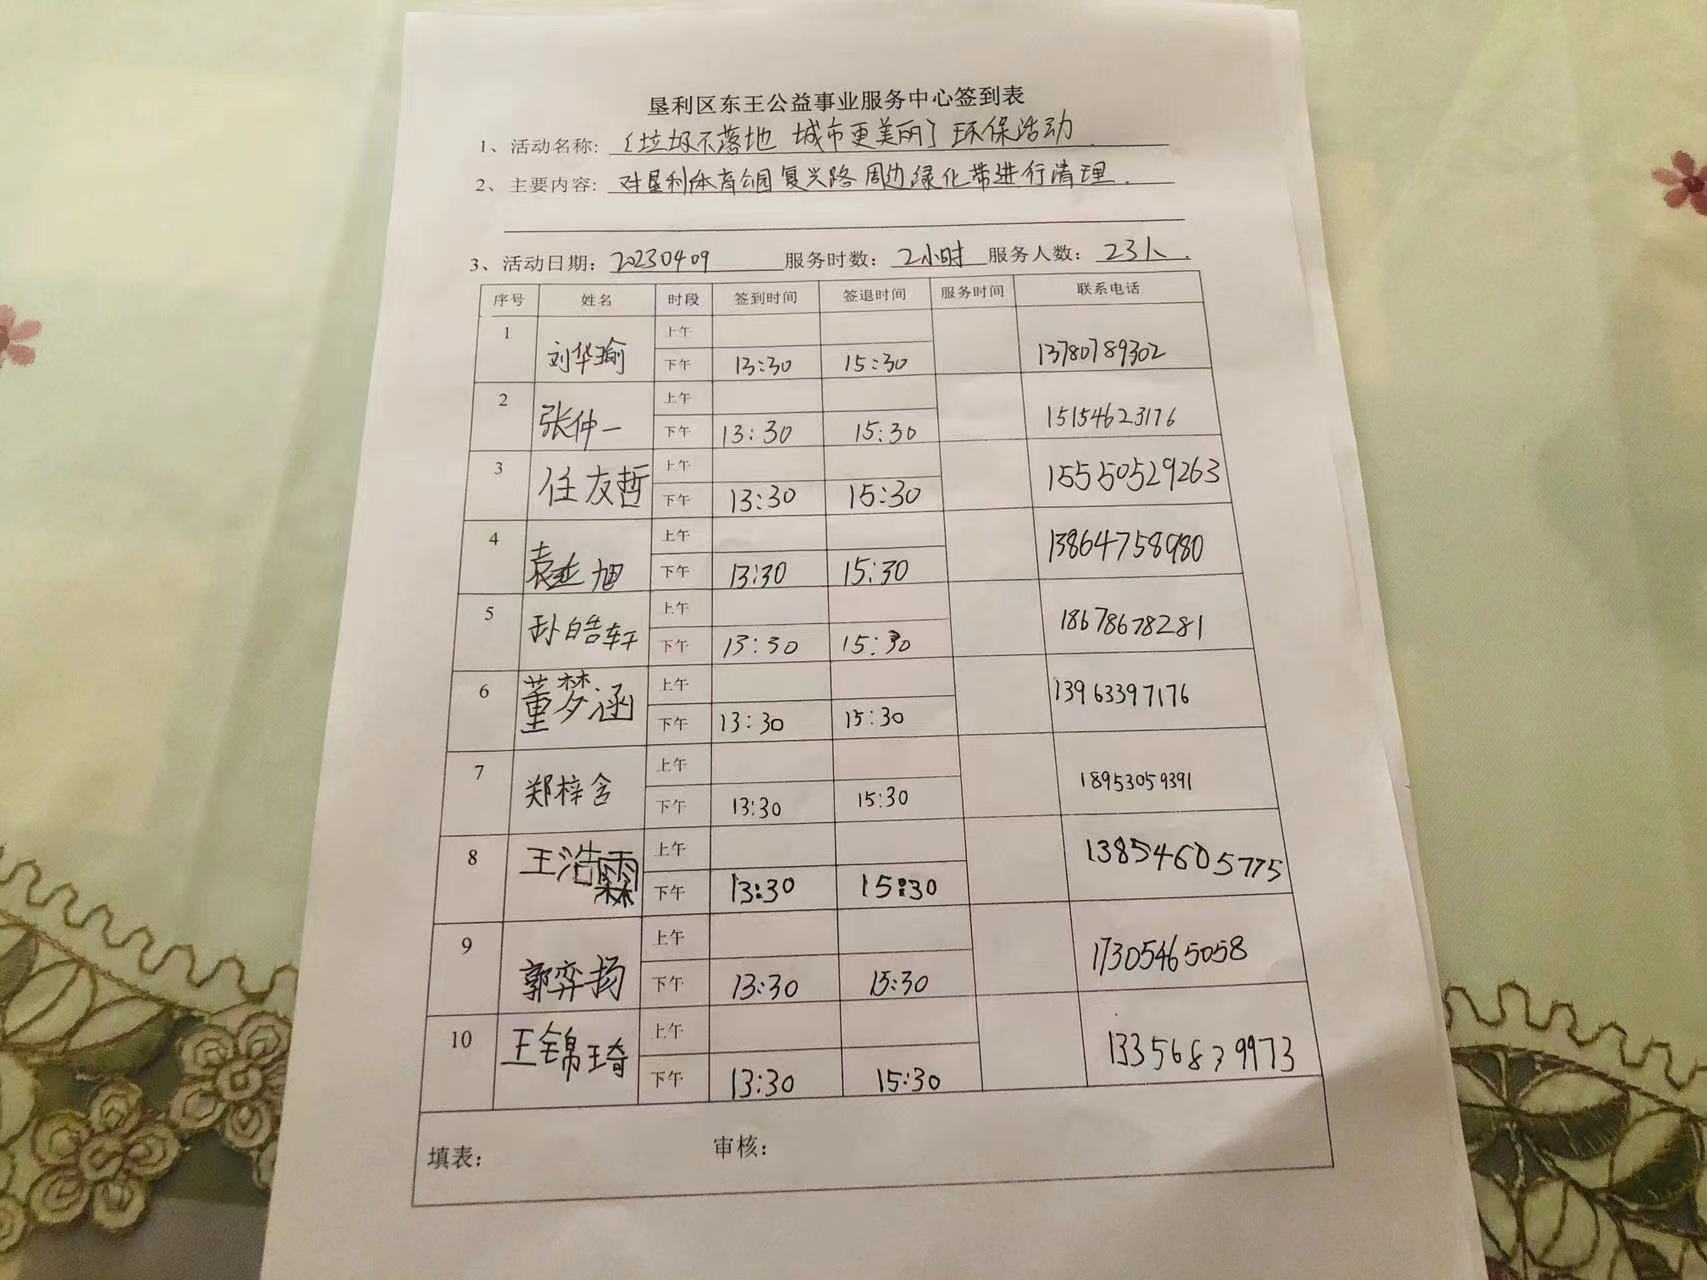 垦利区东王公益事业服务中心签到表
1、活动名称: 〔垃圾不落地 城市更美丽〕环保活动.
2、主要内容: 对垦利体育公园复兴路周边绿化带进行清理.
3、活动日期: 20230409 服务时数: 2小时 服务人数: 23人.
序号 姓名 时段 签到时间 签退时间 服务时间 联系电话
1 刘华瑜 上午
下午 13:30 15:30 13780789302
2 张仲一 上午
下午 13:30 15:30 15154623176
3 任友哲 上午
下午 13:30 15:30 15550529263
4 袁延旭 上午
下午 13:30 15:30 13864758980
5 孙皓轩 上午
下午 13:30 15:30 18678678281
6 董梦涵 上午
下午 13:30 15:30 13963397176
7 郑梓含 上午
下午 13:30 15:30 18953059391
8 王浩霖 上午
下午 13:30 15:30 13854605775
9 郭弈扬 上午
下午 13:30 15:30 17305465058
10 王锦琦 上午
下午 13:30 15:30
填表: 审核: